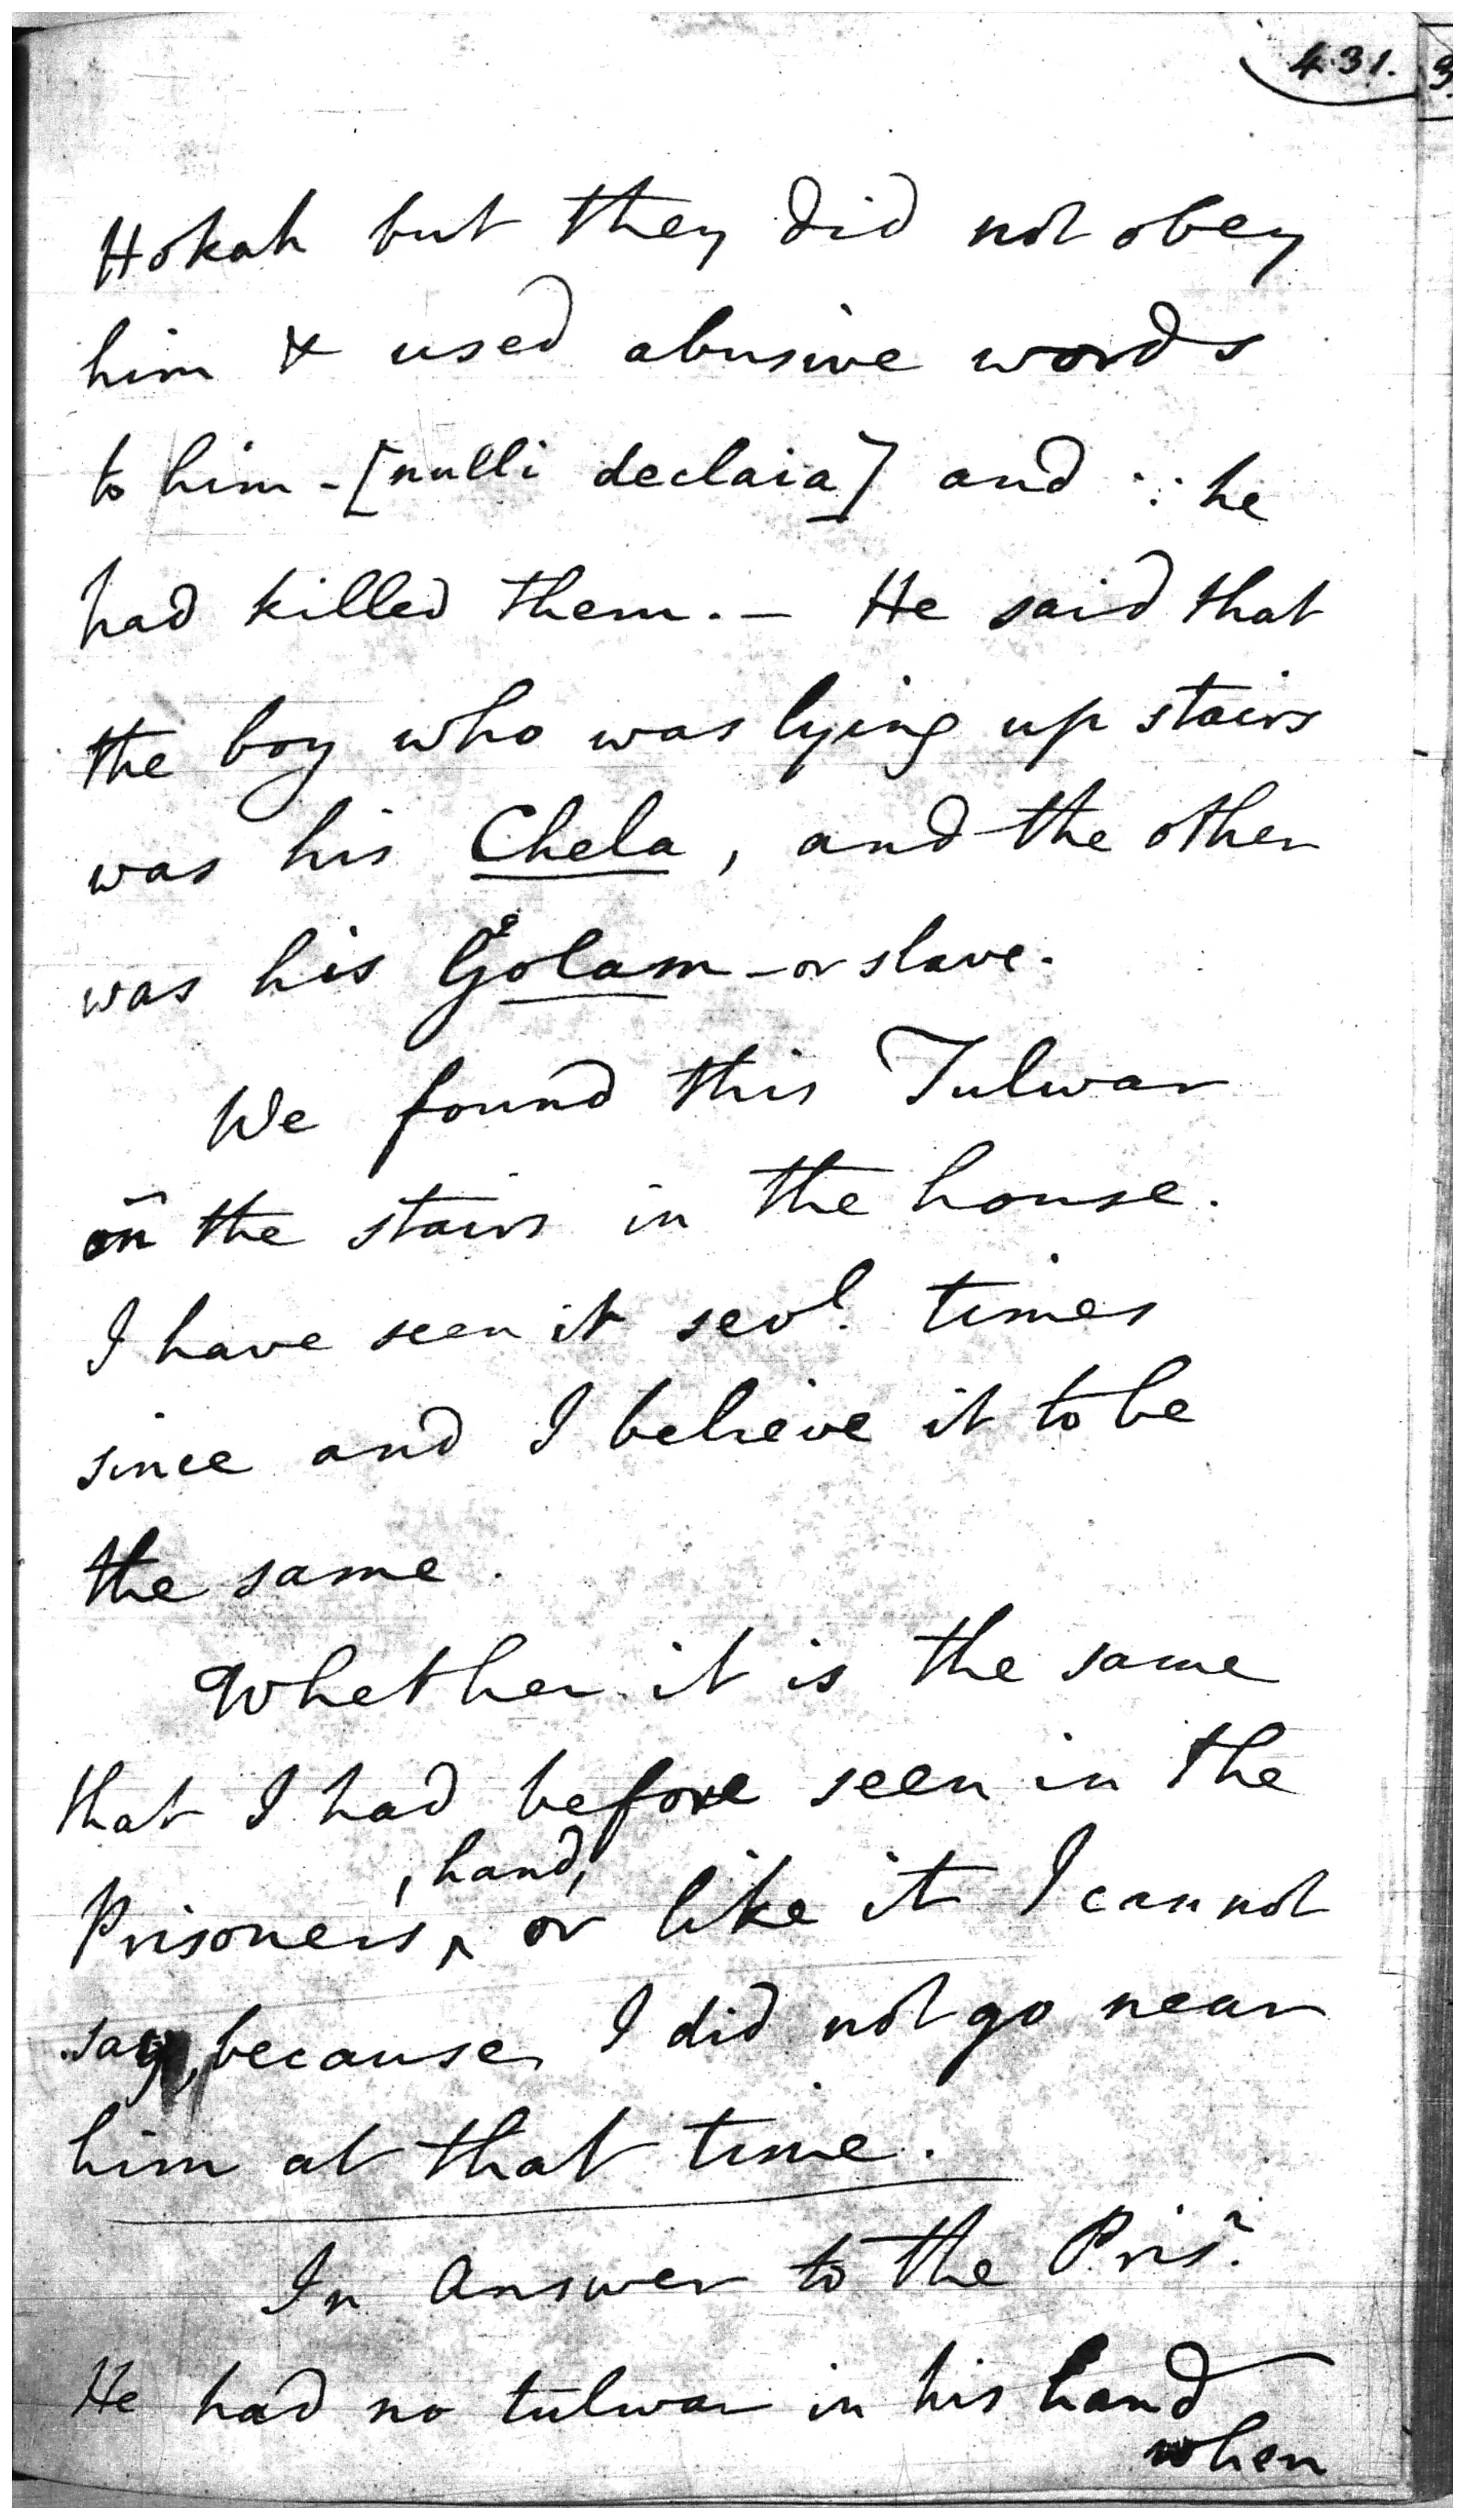 431.
Hokah but they did not obey
him & used abusive words
to him - [nulli declaia] and ∵ he
had killed them. — He said that
the boy who was lying up stairs
was his Chela, and the other
was his Golam - or slave.
We found this Tulwar
on the stairs in the house.
I have seen it sevl. times
since and I believe it to be
the same.
Whether it is the same
that I had before seen in the
Prisoner's hand, or like it I cannot
say, because I did not go near
him at that time.
In Answer to the Prisr.
He had no tulwar in his hand
when